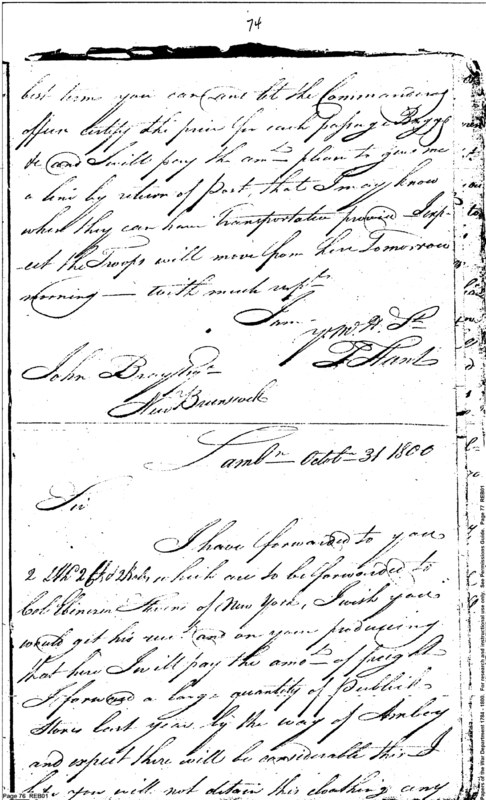 74
best terms you can and let the Commanding
officer certify the price for each passinge Baggage
&c and I will pay the amt. please to give me
a line by return of Post that I may know
when they can have Transportation provided I exp-
-ect the Troops will move from here Tomorrow
morning — with much respt.
I am
yr. M. H. St
T Hunt
John Bray Esqr.
New Brunswick
Lambn. Octobr. 31 1800
Sir
I have forwarded to you
which are to be forwarded to
Col Ebenezer Stevens of New York, I wish you
would get his rect. and on your producing
that here I will pay the amot. of freight
I forward a large quantity of Publick
Stores last year by the way of Amboy
and expect there will be considerable this I
hope you will not detain this cloathing any
Page 76 REB01
Papers of the War Department 1784 - 1800. For research and instructional use only. See Permissions Guide. Page 77 REB01